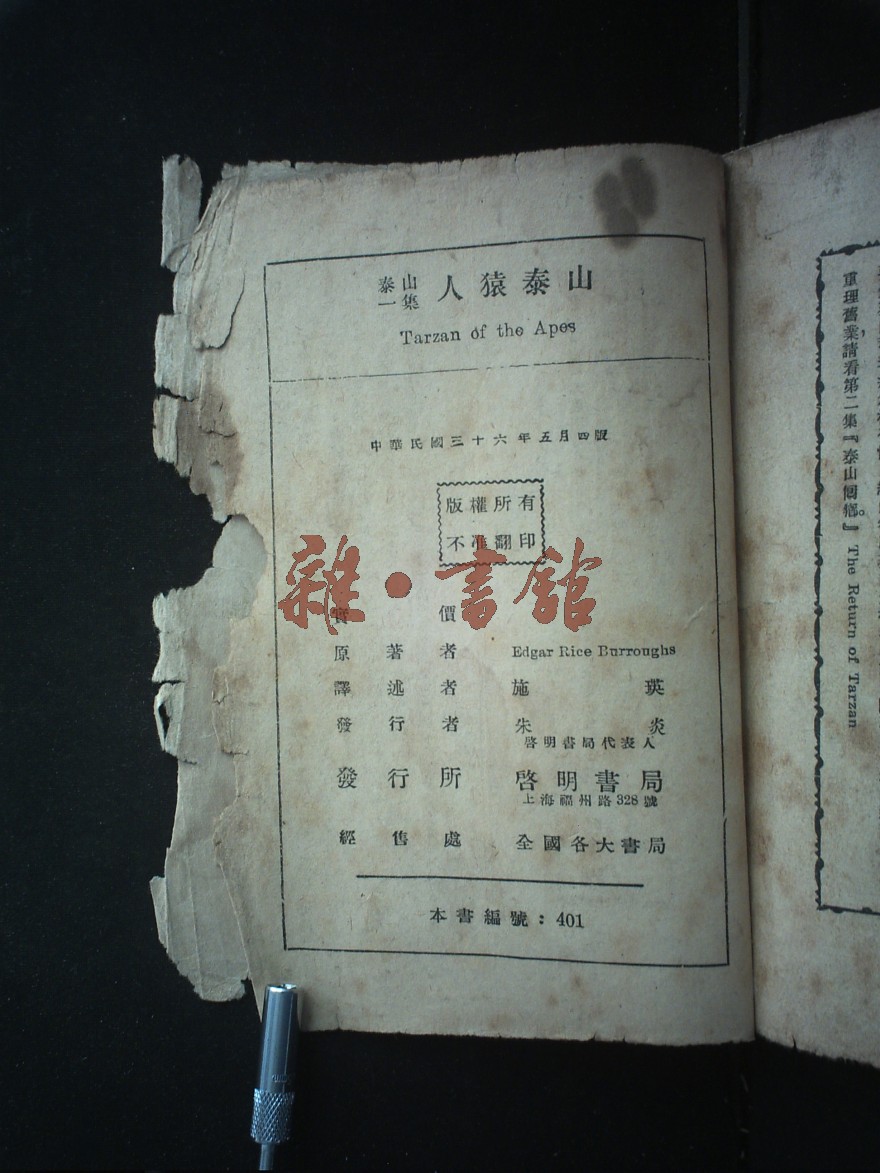 泰山一集 人猿泰山
Tarzan of the Apes
中華民國三十六年五月四版
版權所有
不准翻印
雜·書館
實價
原著者 Edgar Rice Burroughs
譯述者 施瑛
發行者 朱炎
啓明書局代表人
發行所 啓明書局
上海福州路328號
經售處 全國各大書局
本書編號：401
重理舊業，請看第二集『泰山回鄉。』 The Return of Tarzan